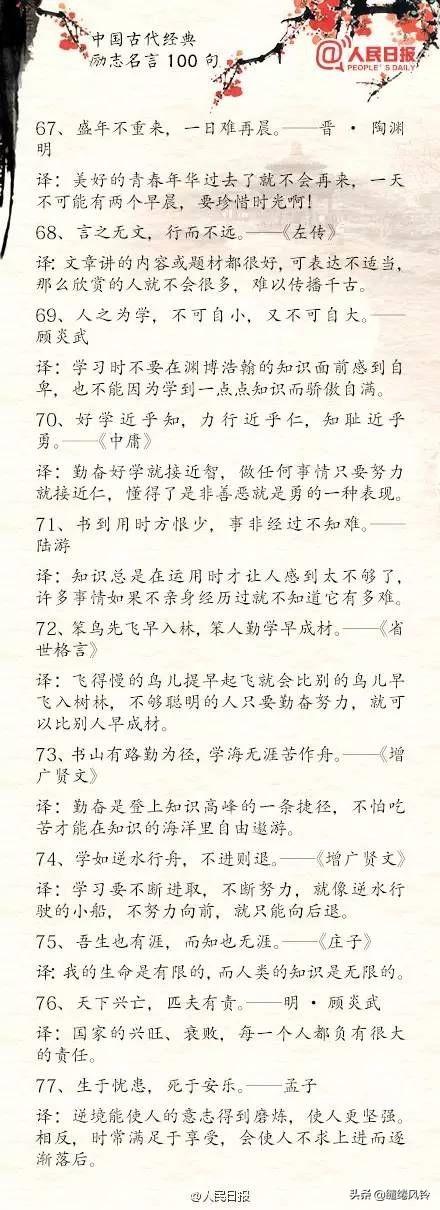 中国古代经典
励志名言100句
@人民日报
PEOPLE'S DAILY
67、盛年不重来，一日难再晨。——晋·陶渊
明
译：美好的青春年华过去了就不会再来，一天
不可能有两个早晨，要珍惜时光啊！
68、言之无文，行而不远。——《左传》
译：文章讲的内容或题材都很好，可表达不适当，
那么欣赏的人就不会很多，难以传播千古。
69、人之为学，不可自小，又不可自大。——
顾炎武
译：学习时不要在渊博浩翰的知识面前感到自
卑，也不能因为学到一点点知识而骄傲自满。
70、好学近乎知，力行近乎仁，知耻近乎
勇。——《中庸》
译：勤奋好学就接近智，做任何事情只要努力
就接近仁，懂得了是非善恶就是勇的一种表现。
71、书到用时方恨少，事非经过不知难。——
陆游
译：知识总是在运用时才让人感到太不够了，
许多事情如果不亲身经历过就不知道它有多难。
72、笨鸟先飞早入林，笨人勤学早成材。——《省
世格言》
译：飞得慢的鸟儿提早起飞就会比别的鸟儿早
飞入树林，不够聪明的人只要勤奋努力，就可
以比别人早成材。
73、书山有路勤为径，学海无涯苦作舟。——《增
广贤文》
译：勤奋是登上知识高峰的一条捷径，不怕吃
苦才能在知识的海洋里自由遨游。
74、学如逆水行舟，不进则退。——《增广贤文》
译：学习要不断进取，不断努力，就像逆水行
驶的小船，不努力向前，就只能向后退。
75、吾生也有涯，而知也无涯。——《庄子》
译：我的生命是有限的，而人类的知识是无限的。
76、天下兴亡，匹夫有责。——明·顾炎武
译：国家的兴旺、衰败，每一个人都负有很大
的责任。
77、生于忧患，死于安乐。——孟子
译：逆境能使人的意志得到磨炼，使人更坚强。
相反，时常满足于享受，会使人不求上进而逐
渐落后。
@人民日报
头条@缠绕风铃